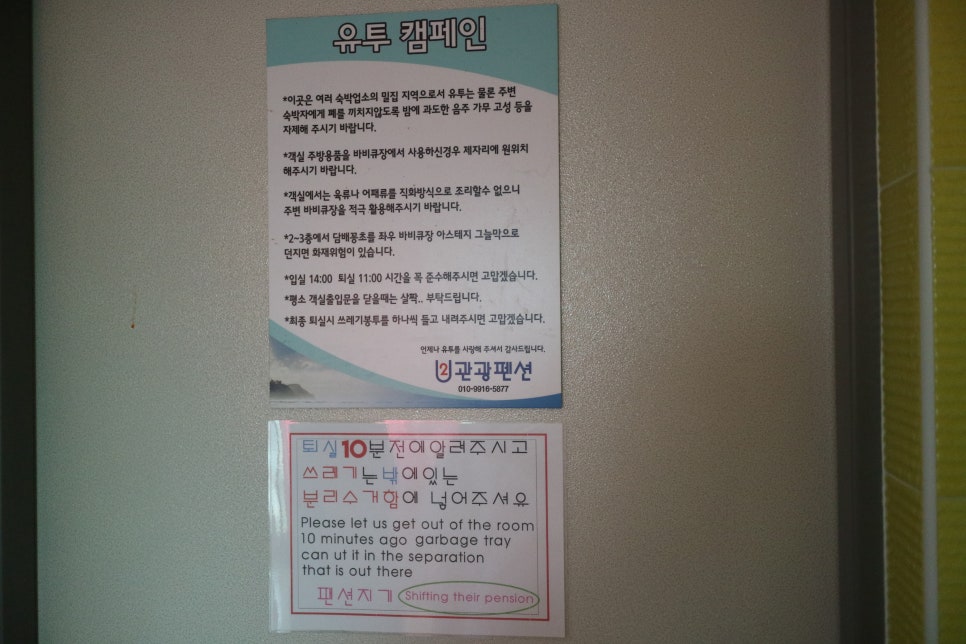 유투 캠페인
*이곳은 여러 숙박업소의 밀집 지역으로서 유투는 물론 주변
숙박자에게 폐를 끼치지않도록 밤에 과도한 음주 가무 고성 등을
자제해 주시기 바랍니다.
*객실 주방용품을 바비큐장에서 사용하신경우 제자리에 원위치
해주시기 바랍니다.
*객실에서는 육류나 어패류를 직화방식으로 조리할수 없으니
주변 바비큐장을 적극 활용해주시기 바랍니다.
*2~3층에서 담배꽁초를 좌우 바비큐장 아스테지 그늘막으로
던지면 화재위험이 있습니다.
*입실 14:00 퇴실 11:00 시간을 꼭 준수해주시면 고맙겠습니다.
*평소 객실출입문을 닫을때는 살짝.. 부탁드립니다.
*최종 퇴실시 쓰레기봉투를 하나씩 들고 내려주시면 고맙겠습니다.
언제나 유투를 사랑해 주셔서 감사드립니다.
U2 관광펜션
010-9916-5877
퇴실10분전에알려주시고
쓰레기는밖에있는
분리수거함에 넣어주셔요
Please let us get out of the room
10 minutes ago garbage tray
can ut it in the separation
that is out there
팬션지기 Shifting their pension